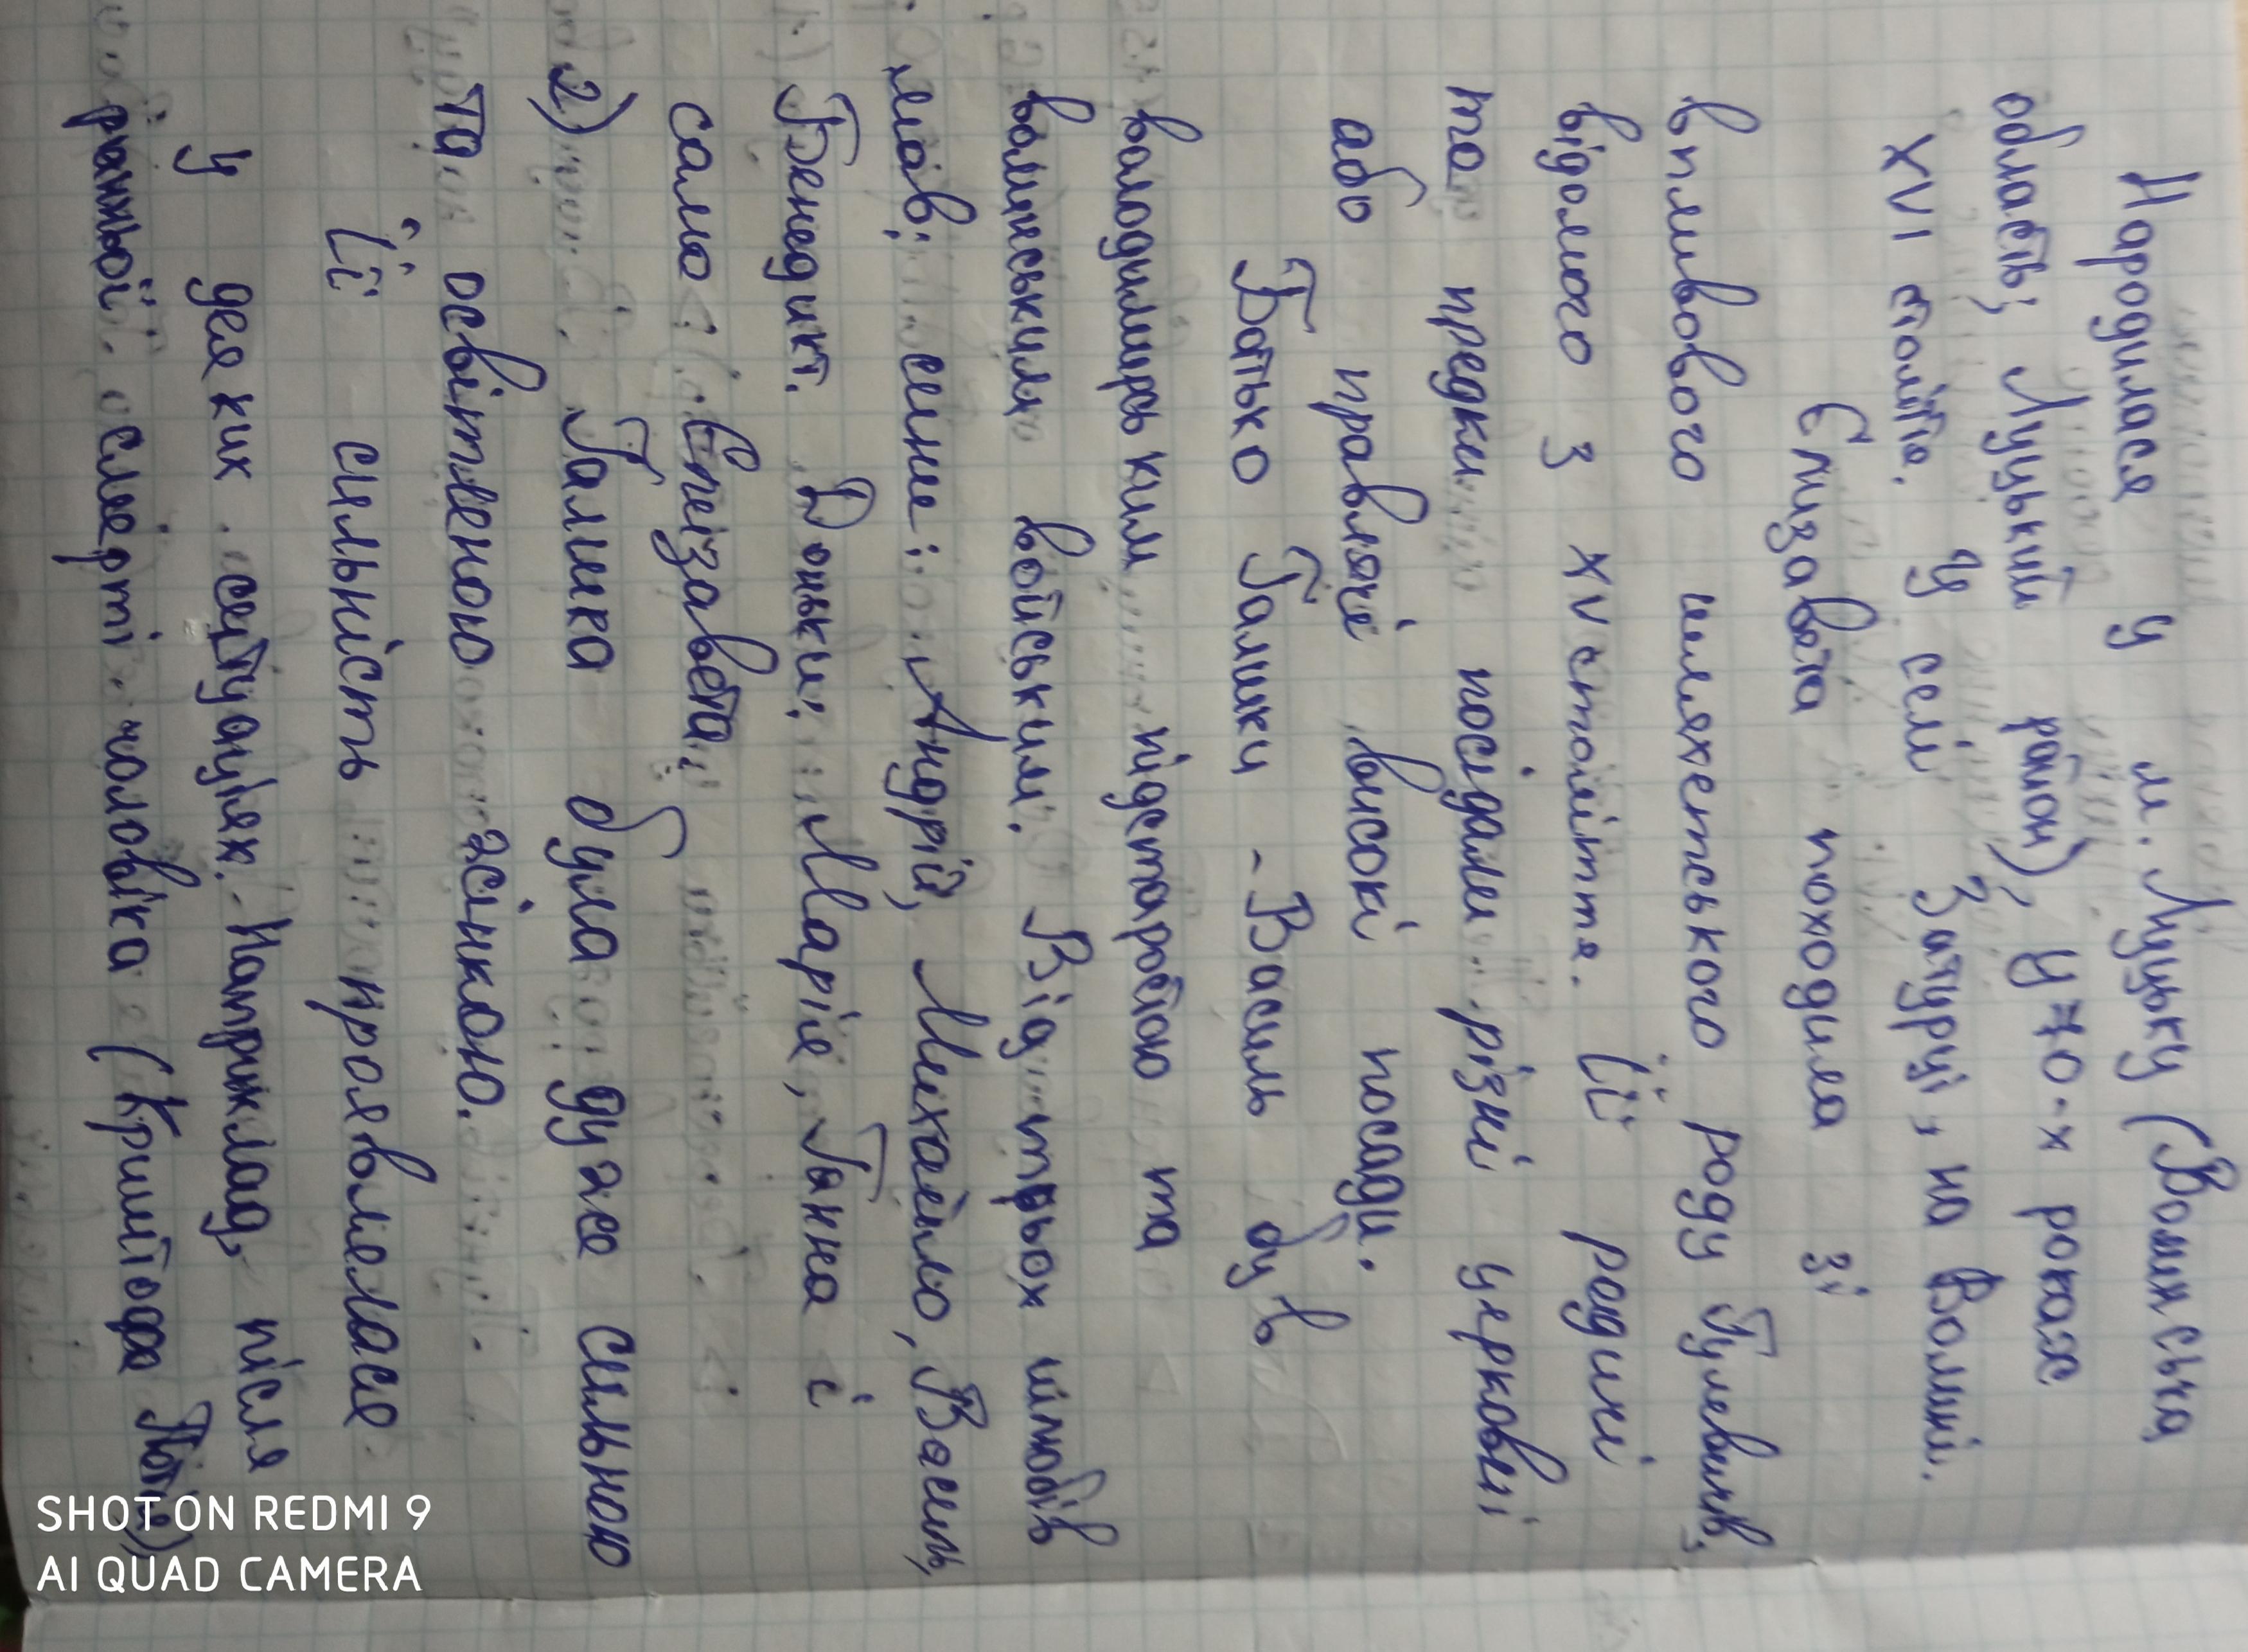 Народилася у м. Луцьку (Волинська
область, Луцький район), у 70-х роках
XVI століття. У селі Затурці, на Волині.
Єлизавета походила зі
впливового шляхетського роду Гулевичів,
відомого з XV століття. Її родичі
та предки посідали різні церковні
або правлячі високі посади.
Батько Галшки - Василь був
володимирським підстаростою та
волинським войським. Від трьох шлюбів
мав; сини: Андрій, Михайло, Василь,
Бенедикт. Доньки: Марія, Ганна і
сама Єлізавета.
2) Галшка була дуже сильною
та освітленою жінкою.
Її сильність проявлялася
у деяких ситуаціях. Наприклад, після
ранньої смерті чоловіка (Криштофа Потія)
SHOT ON REDMI 9
AI QUAD CAMERA